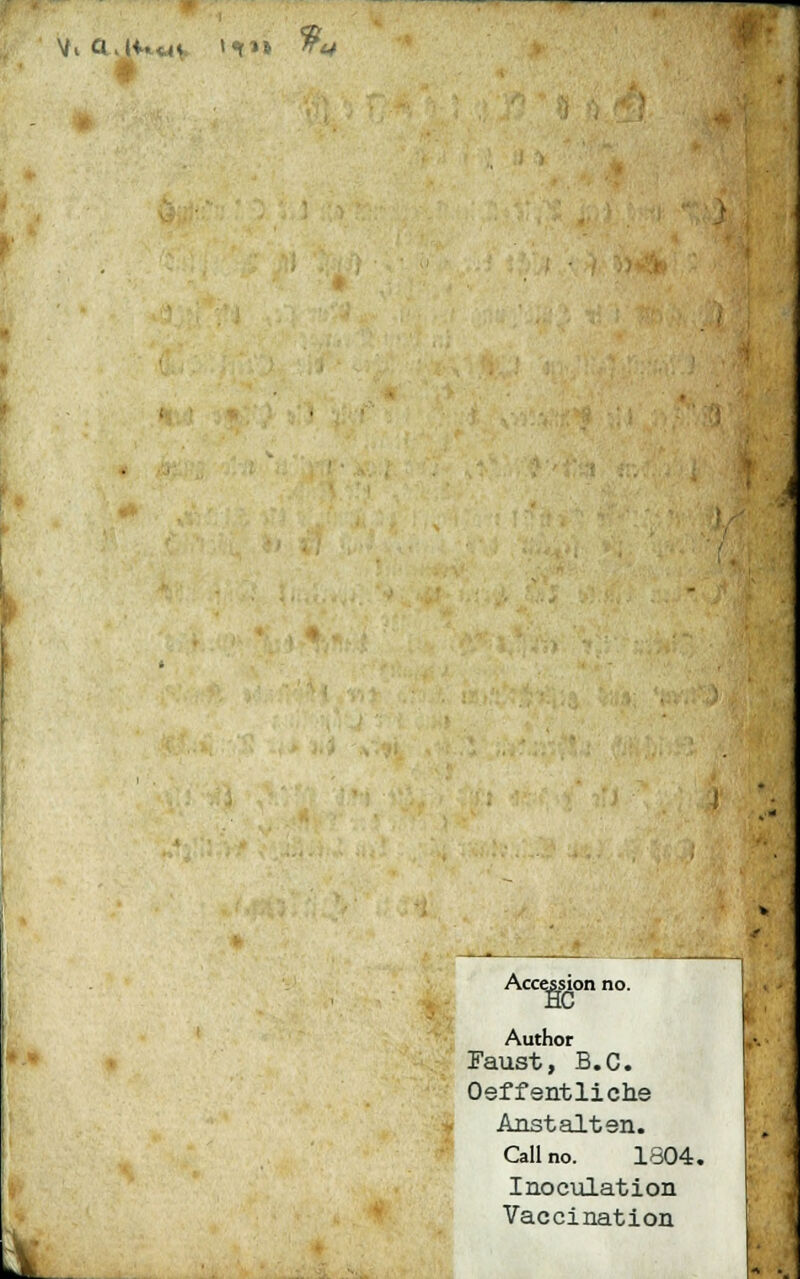 Accession no.
HC
Author
Faust, B.C.
Oeffentliche
Anstalten.
Call no. 1804.
Inoculation
Vaccination